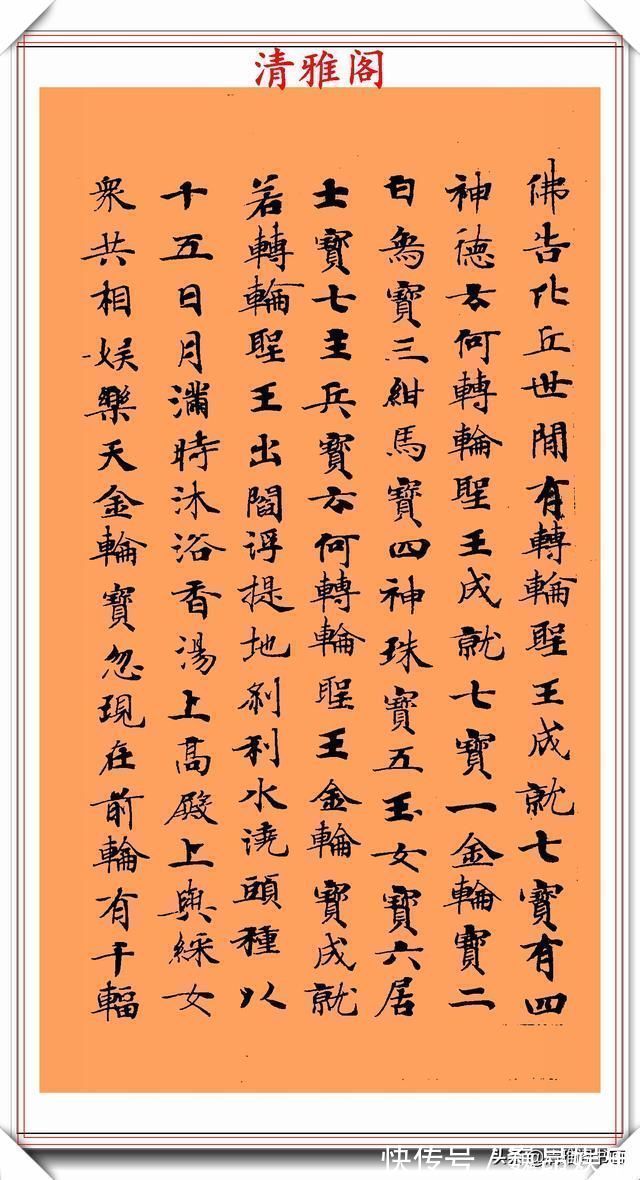 清雅阁
佛告比丘世間有轉輪聖王成就七寶有四
神德云何轉輪聖王成就七寶一金輪寶二
白象寶三紺馬寶四神珠寶五玉女寶六居
士寶七主兵寶云何轉輪聖王金輪寶成就
若轉輪聖王出閻浮提地剎利水澆頭種以
十五日月滿時沐浴香湯上高殿上與綵女
眾共相娛樂天金輪寶忽現在前輪有千輻
快传号 /